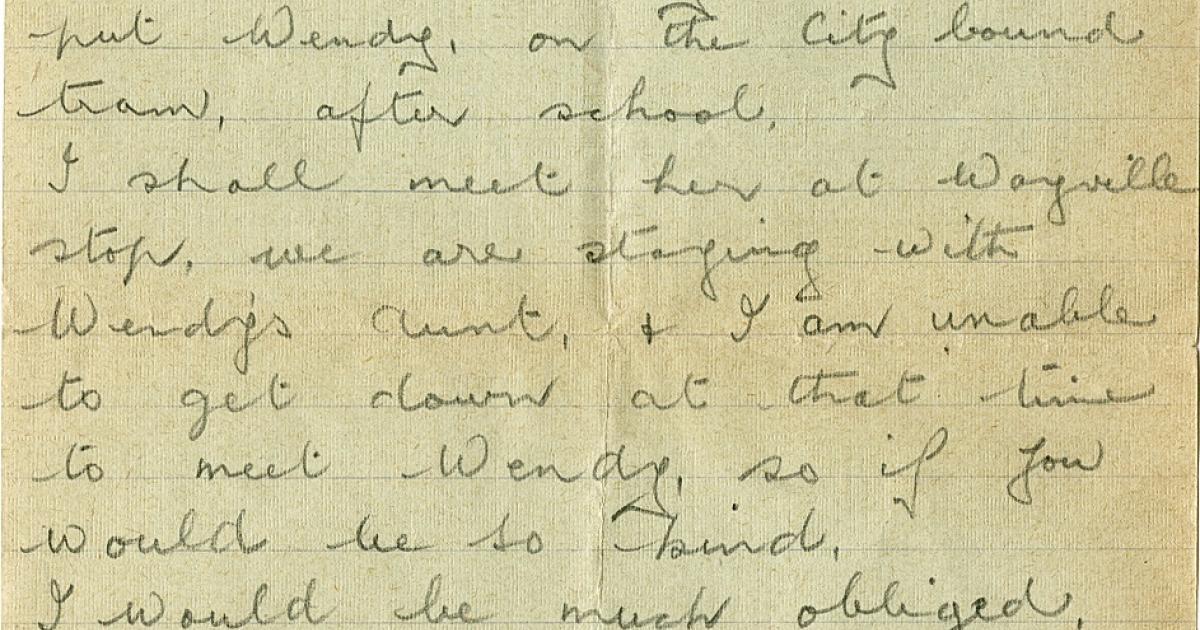 put Wendy, on the City bound
tram, after school.
I shall meet her at Wayville
stop, we are staying with
Wendy's Aunt, & I am unable
to get down at that time
to meet Wendy, so if you
would be so kind.
I would be much obliged.